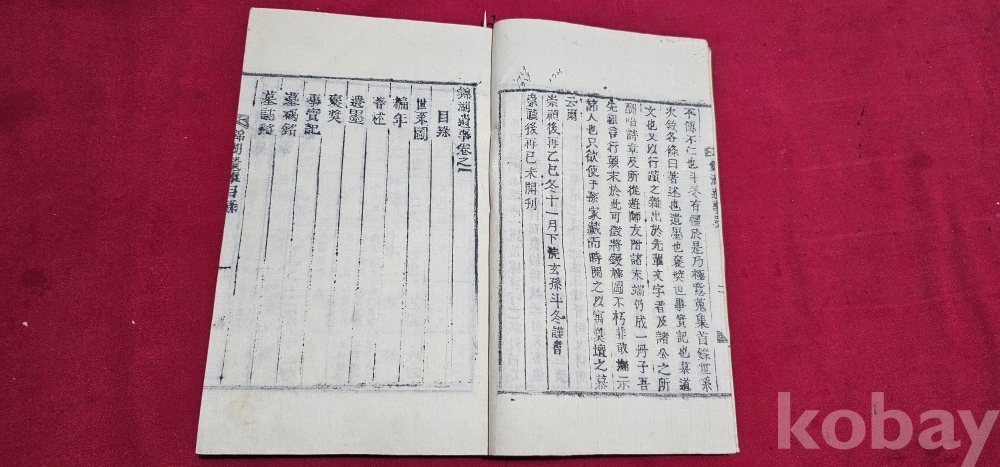 不傳不仁也斗冬有懼於是乃極意蒐集首錄世系
次敘各條曰著述也遺墨也褒奬也事實記也墓道
文也又以行蹟之雜出於先輩文字者及諸公之所
酬唱詩章及所從遊師友附諸末端仍成一冊子吾
先祖言行顚末於此可徵將鋟梓圖不朽非敢
示
諸人也只欲使子孫家藏而時閱之以寓羹墻之慕
云爾
崇禎後再乙巳冬十一月下浣玄孫斗冬謹書
崇禎後再己未開刊
二
錦湖遺事卷之一
目錄
世系圖
編年
著述
遺墨
褒奬
事實記
墓碣銘
墓誌銘
錦湖遺事目錄
一
kobay